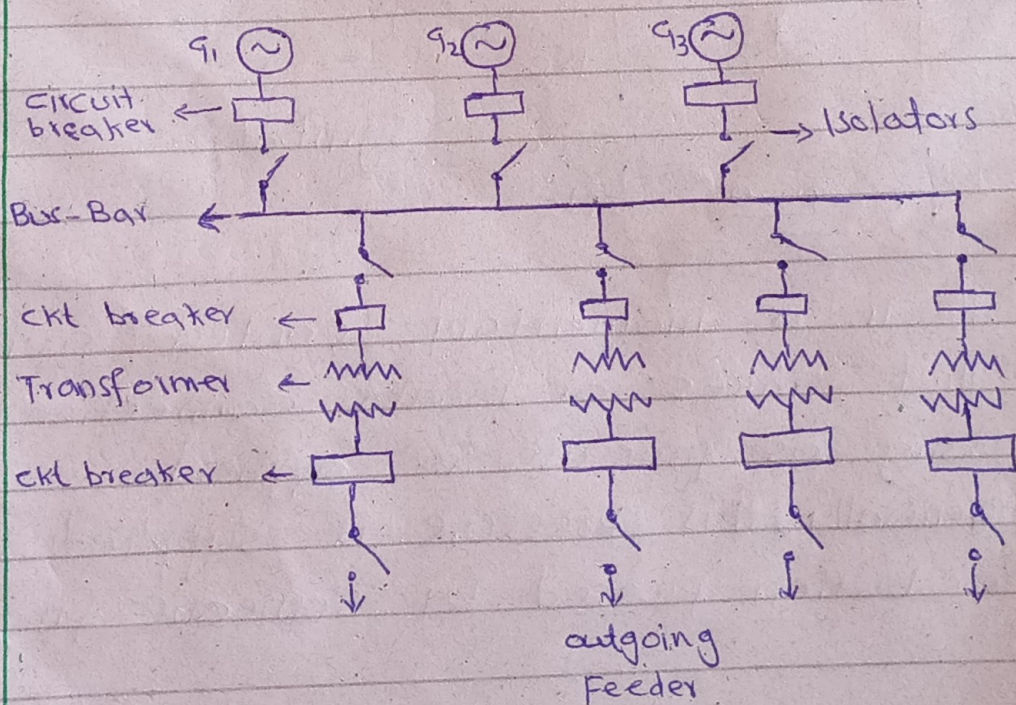 G1
G2
G3
Circuit
breaker
Isolators
Bus-Bar
ckt breaker
Transformer
ckt breaker
outgoing
Feeder